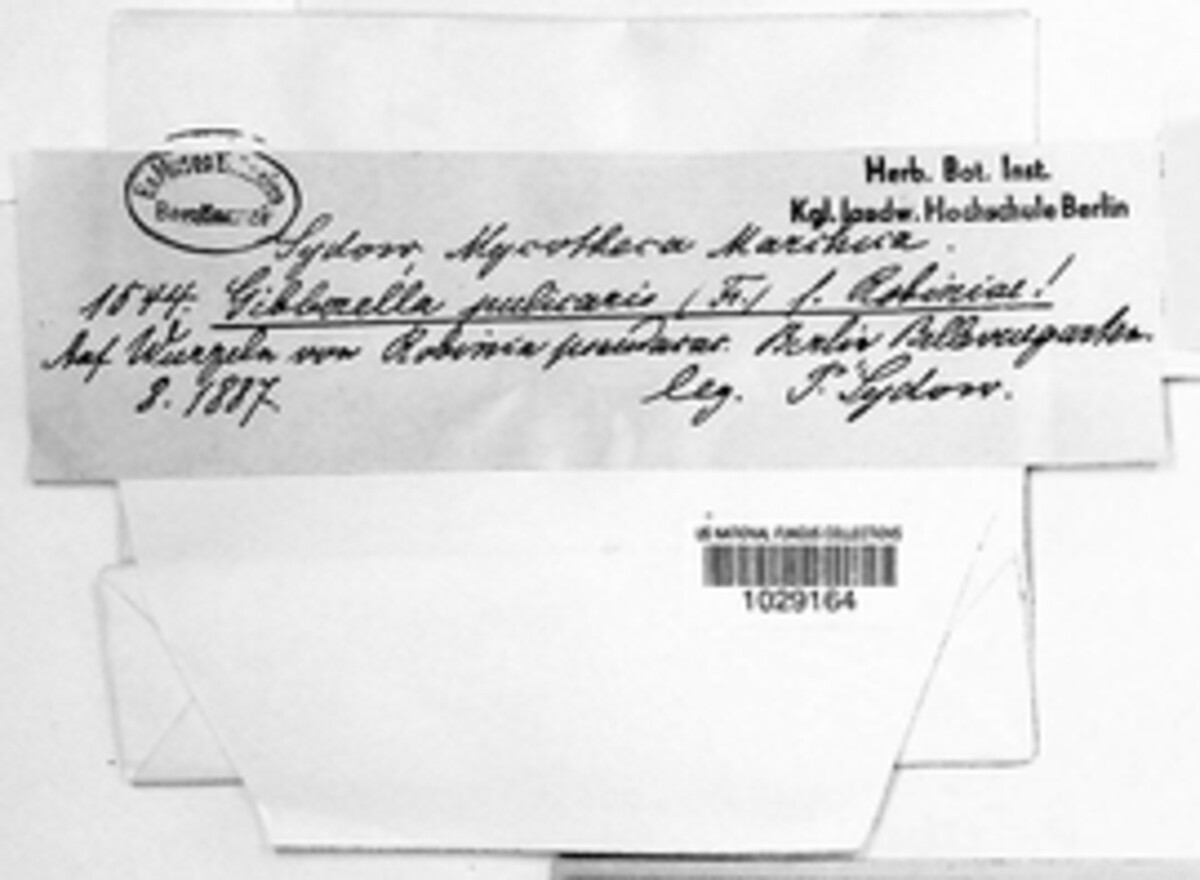 Ex Museo
Herb. Bot. Inst.
Kgl. landw. Hochschule Berlin
Sydow, Mycotheca Marchica.
1544. Gibberella pulicaris (Fr.) f. Robiniae!
Auf Wurzeln von Robinia pseudacac. Berlin Bellevuegarten.
8. 1887. leg. P. Sydow.
US NATIONAL FUNGUS COLLECTIONS
1029164